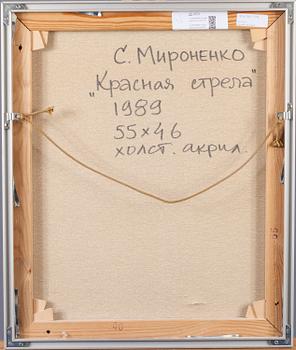 С. Мироненко
„Красная стрела"
1989
55×46
холст. акрил.